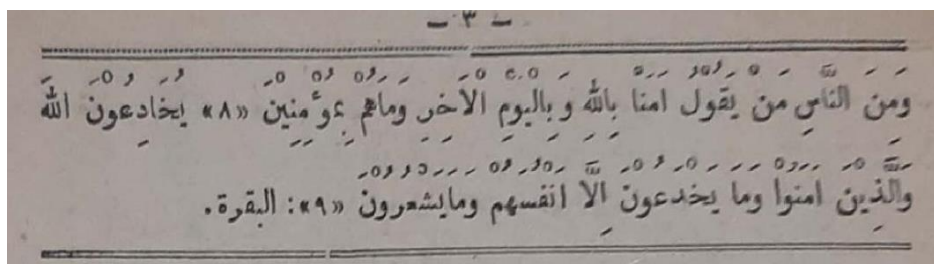 — ٣ —
وَمِنَ النَّاسِ مَنْ يَقُولُ امَنَّا بِاللهِ وَبِالْيَوْمِ الْاخِرِ وَمَاهُمْ بِمُؤْمِنِينَ «٨» يُخَادِعُونَ اللهَ
وَالَّذِينَ امَنُوا وَمَا يَخْدَعُونَ اِلَّا اَنْفُسَهُمْ وَمَايَشْعُرُونَ «٩»: البقرة.